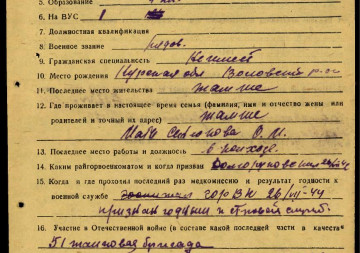 5. Образование
6. На ВУС 1
7. Должностная квалификация
8. Военное звание рядов.
9. Гражданская специальность
10. Место рождения Курская обл Воловский р-он
11. Последнее место жительства там же
12. Где проживает в настоящее время семья (фамилия, имя и отчество жены или
родителей и точный их адрес) там же
О. И.
13. Последнее место работы и должность в колхозе
14. Каким райгорвоенкоматом и когда призван
15. Когда и где проходил последний раз медкомиссию и результат годности к
военной службе горВК 26/VII-44
признан годным к строевой служб.
16. Участие в Отечественной войне (в составе какой последней части в качестве
51 танковая бригада